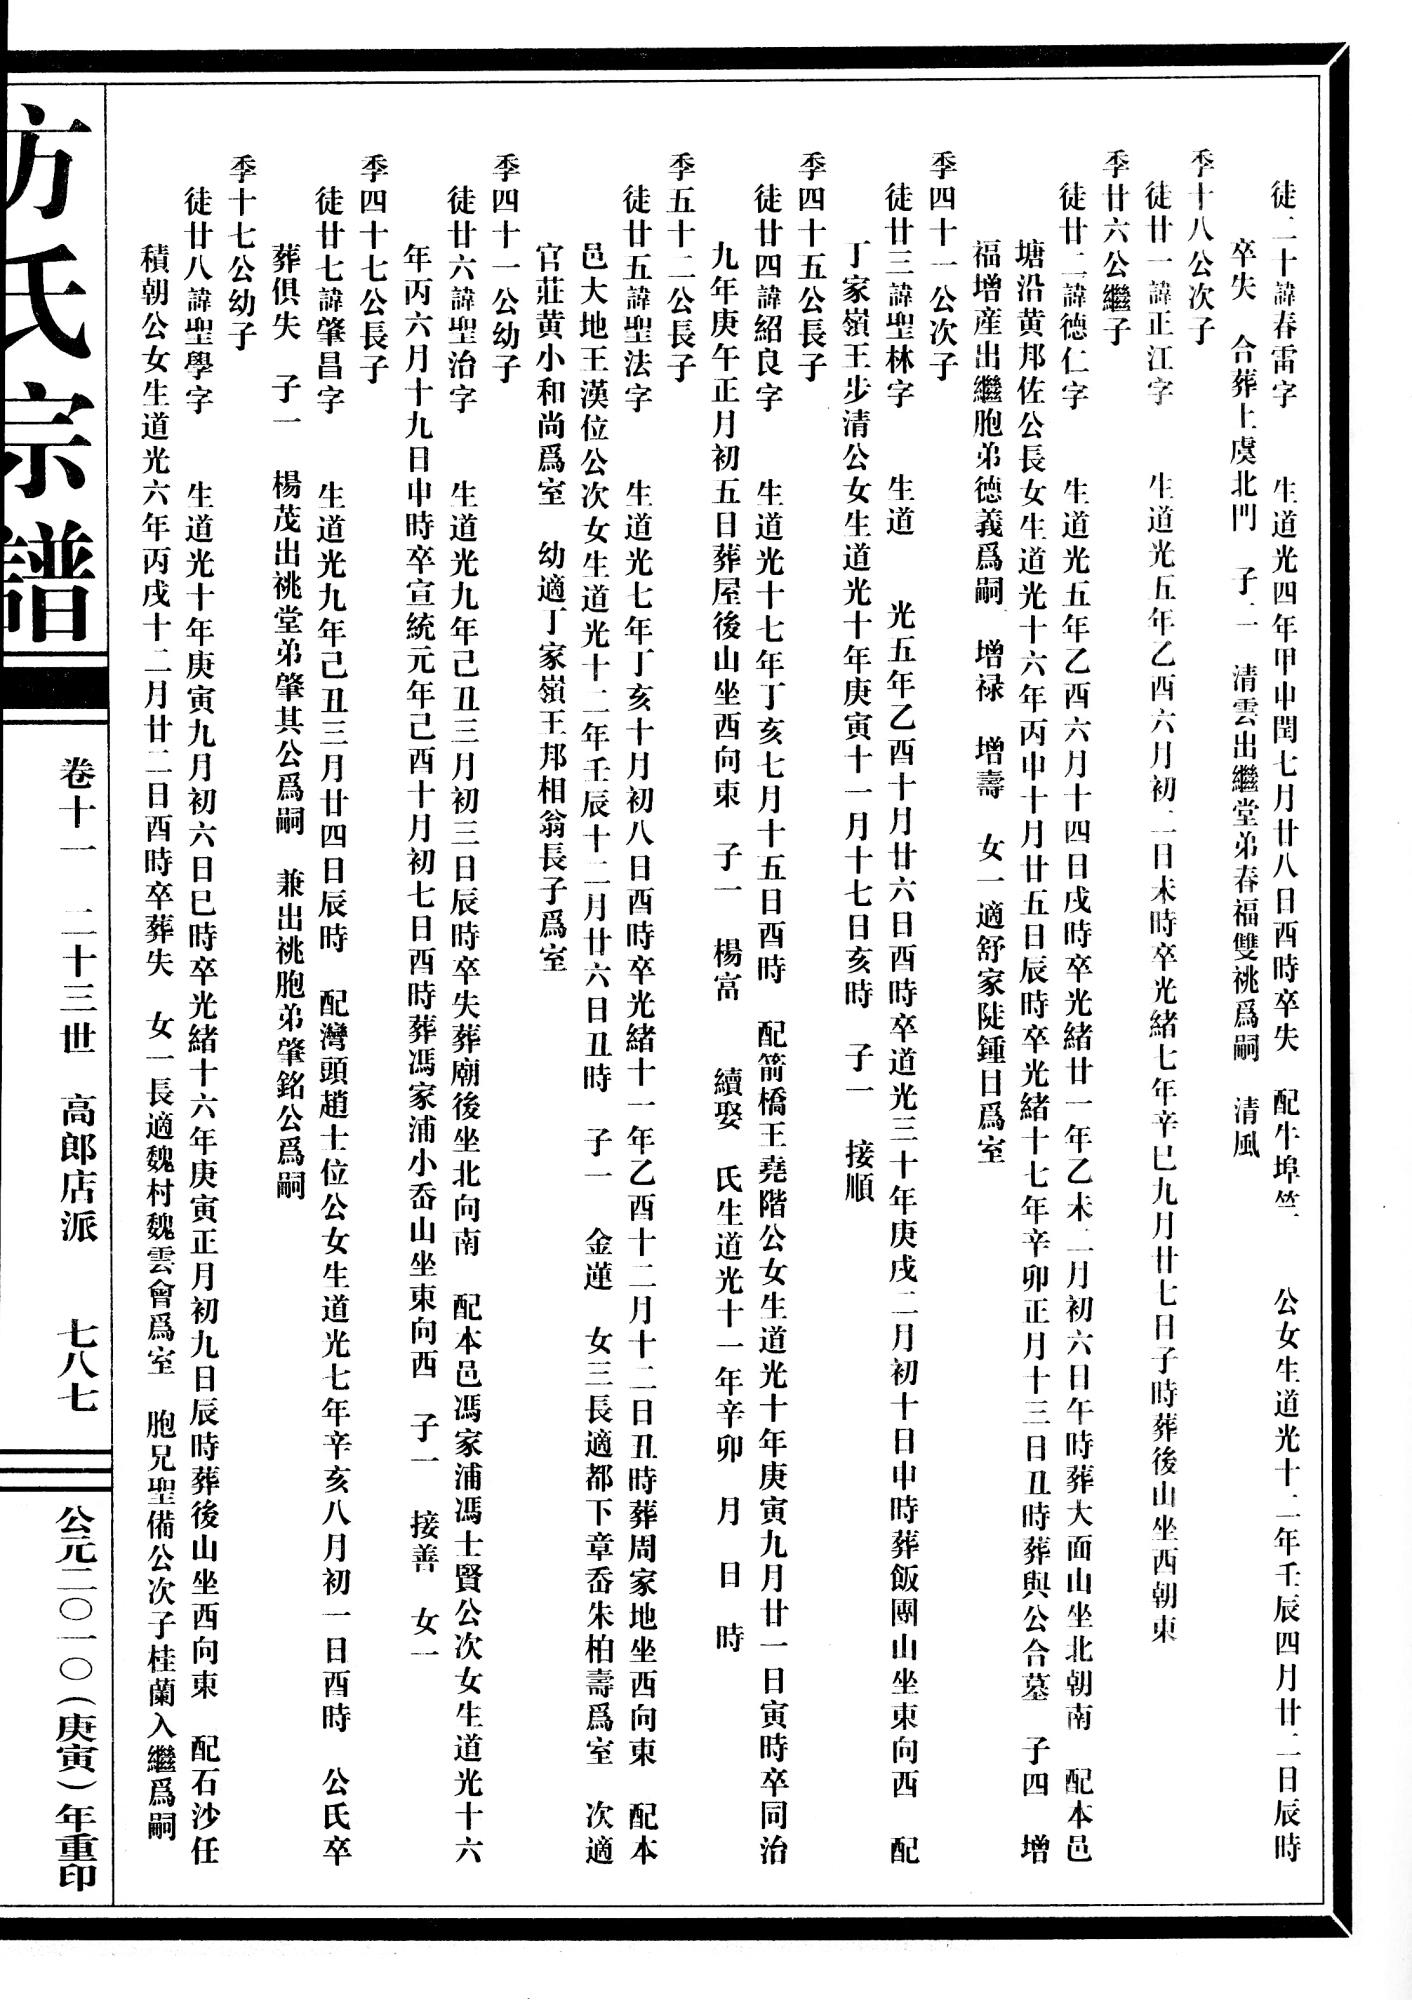 徒二十諱春雷字　生道光四年甲申閏七月廿八日酉時卒失　配牛埠竺　公女生道光十二年壬辰四月廿二日辰時
卒失　合葬上虞北門　子二　清雲出繼堂弟春福雙祧爲嗣　清風
季十八公次子
徒廿一諱正江字　生道光五年乙酉六月初二日未時卒光緒七年辛巳九月廿七日子時葬後山坐西朝東
季廿六公繼子
徒廿二諱德仁字　生道光五年乙酉六月十四日戌時卒光緒廿一年乙未二月初六日午時葬大面山坐北朝南　配本邑
塘沿黄邦佐公長女生道光十六年丙申十月廿五日辰時卒光緒十七年辛卯正月十三日丑時葬與公合墓　子四　增
福增産出繼胞弟德義爲嗣　增禄　增壽　女一適舒家陡鍾日爲室
季四十一公次子
徒廿三諱聖林字　生道　光五年乙酉十月廿六日酉時卒道光三十年庚戌二月初十日申時葬飯團山坐東向西　配
丁家嶺王步清公女生道光十年庚寅十一月十七日亥時　子一　接順
季四十五公長子
徒廿四諱紹良字　生道光十七年丁亥七月十五日酉時　配箭橋王堯階公女生道光十年庚寅九月廿一日寅時卒同治
九年庚午正月初五日葬屋後山坐西向東　子一　楊富　續娶　氏生道光十一年辛卯　月　日　時
季五十二公長子
徒廿五諱聖法字　生道光七年丁亥十月初八日酉時卒光緒十一年乙酉十二月十二日丑時葬周家地坐西向東　配本
邑大地王漢位公次女生道光十二年壬辰十二月廿六日丑時　子一　金蓮　女三長適都下章岙朱柏壽爲室　次適
官莊黄小和尚爲室　幼適丁家嶺王邦相翁長子爲室
季四十一公幼子
徒廿六諱聖治字　生道光九年己丑三月初三日辰時卒失葬廟後坐北向南　配本邑馮家浦馮士賢公次女生道光十六
年丙六月十九日申時卒宣統元年己酉十月初七日酉時葬馮家浦小岙山坐東向西　子一　接善　女一
季四十七公長子
徒廿七諱肇昌字　生道光九年己丑三月廿四日辰時　配灣頭趙士位公女生道光七年辛亥八月初一日酉時　公氏卒
葬俱失　子一　楊茂出祧堂弟肇其公爲嗣　兼出祧胞弟肇銘公爲嗣
季十七公幼子
徒廿八諱聖學字　生道光十年庚寅九月初六日巳時卒光緒十六年庚寅正月初九日辰時葬後山坐西向東　配石沙任
積朝公女生道光六年丙戌十二月廿二日酉時卒葬失　女一長適魏村魏雲會爲室　胞兄聖備公次子桂蘭入繼爲嗣
方氏宗譜
卷十一　二十三世　高郎店派　七八七
公元二〇一〇(庚寅)年重印